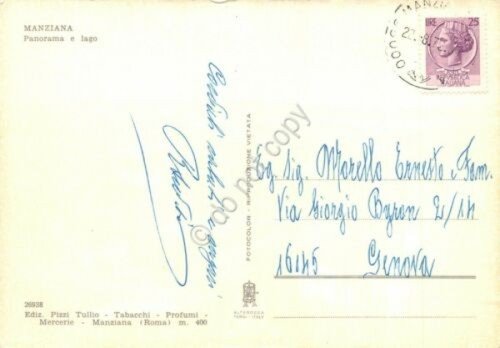 MANZIANA
Panorama e lago
Cordiali saluti e auguri
26938
Ediz. Pizzi Tullio - Tabacchi - Profumi -
Mercerie - Manziana (Roma) m. 400
FOTOCOLOR - RIPRODUZIONE VIETATA
ALTEROCCA
TERNI - ITALY
MANZIANA
25
Eg. Sig. Morello Ernesto e Fam.
Via Giorgio Byron 2/14
16145 Genova
do not copy